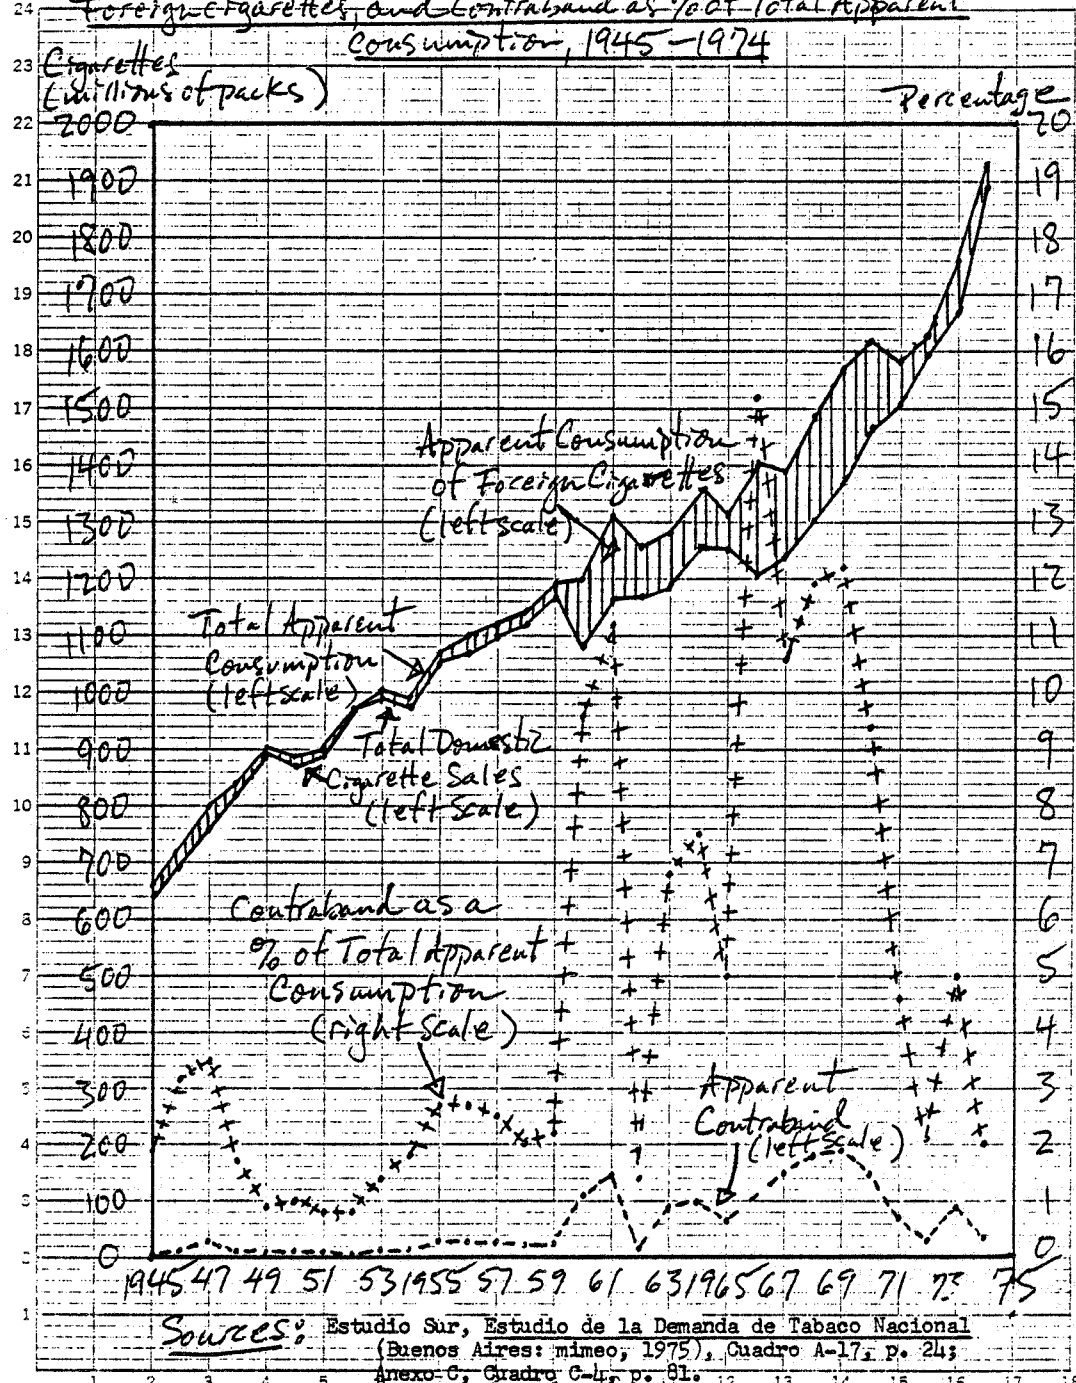 Foreign Cigarettes, and Contraband as % of Total Apparent
Consumption, 1945-1974
Cigarettes
(millions of packs)
Percentage
24
23
22
21
20
19
18
17
16
15
14
13
12
11
10
9
8
7
6
5
4
3
2
1
2000
1900
1800
1700
1600
1500
1400
1300
1200
1100
1000
900
800
700
600
500
400
300
200
100
0
20
19
18
17
16
15
14
13
12
11
10
9
8
7
6
5
4
3
2
1
0
Apparent Consumption
of Foreign Cigarettes
(left scale)
Total Apparent
Consumption
(left scale)
Total Domestic
Cigarette Sales
(left scale)
Contraband as a
% of Total Apparent
Consumption
(right scale)
Apparent
Contraband
(left scale)
1945 47 49 51 53 1955 57 59 61 63 1965 67 69 71 73 75
Sources: Estudio Sur, Estudio de la Demanda de Tabaco Nacional
(Buenos Aires: mimeo, 1975), Cuadro A-17, p. 24;
Anexo C, Cuadro C-4, p. 81.